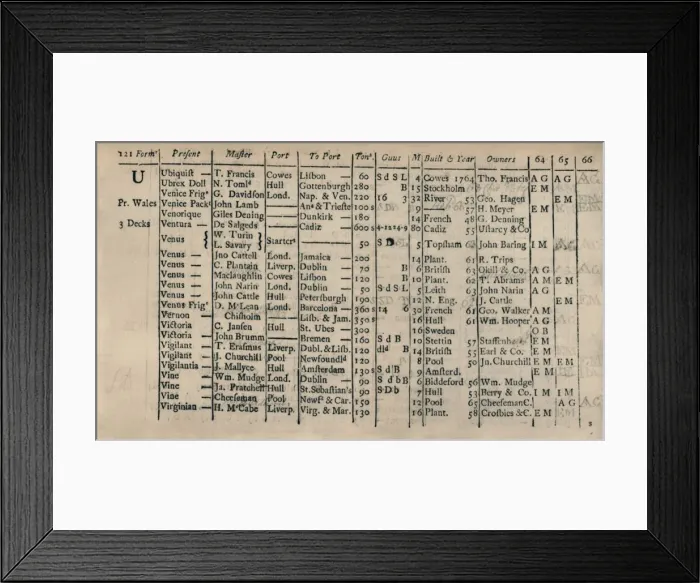 221 Form^r Present Master Port To Port Ton^s. Guns M Built & Year Owners 64 65 66
U Ubiquist — T. Francis Cowes Lisbon — 60 S d S L 4 Cowes 1764 Tho. Francis A G A G
Ubrex Doll N. Toml^s Hull Gottenburgh 280 B 15 Stockholm E M
Venice Frig^t G. Davidson Lond. Nap. & Ven. 220 16 3 32 River 53 Geo. Hagen E M
Pr. Wales Venice Pack^t John Lamb An^a & Trieste 100 s 9 57 H. Meyer E M
Venorique Giles Dening Dunkirk — 180 14 French 48 G. Denning
3 Decks Ventura — De Salgeds Cadiz 600 s 80 Cadiz 55 Ustarcy & Co
Venus { W. Turin } Starters
L. Savary 50 S D 5 Topsham 62 John Baring I M
Venus — Jno Cattell Lond. Jamaica — 200 14 Plant. 61 R. Trips
Venus — C. Plantain Liverp. Dublin — 70 B 6 British 63 Okill & Co. A G
Venus — Maclaughlin Cowes Lisbon — 120 B 10 Plant. 62 T. Abrams A M E M
Venus — John Narin Lond. Dublin — 50 S d S L 5 Leith 63 John Narin A G
Venus — John Cattle Hull Petersburgh 190 12 N. Eng. J. Cattle E M
Venus Frig^t D. McLean Lond. Barcelona — 360 s 14 6 30 French 61 Geo. Walker A M
Vernon — Chisholm — Lisb. & Jam. 350 s 16 Hull 61 Wm. Hooper A G
Victoria — C. Jansen Hull St. Ubes — 300 16 Sweden O B
Victoria — John Brumm Bremen — 160 S d B 10 Stettin 57 E M
Vigilant — T. Erasmus Liverp. Dubl. & Lisb. 120 B 14 British 55 Earl & Co. E M
Vigilant — J. Churchill Pool Newfoundl^d 120 8 Pool 50 Jn. Churchill E M E M
Vigilantia — J. Mallyce Hull Amsterdam 130 s S d B 9 Amsterd. E M
Vine — Wm. Mudge Lond. Dublin — 90 S d b B 6 Biddeford 56 Wm. Mudge
Vine — Ja. Pratchell Hull St. Sebastian's 90 S D b 7 Hull 53 Berry & Co. I M I M
Vine — Cheeseman Pool Newf^d & Car. 150 12 Pool 65 Cheeseman C. A G
Virginian — H. McCabe Liverp. Virg. & Mar. 130 16 Plant. 58 Crosbies & C. E M